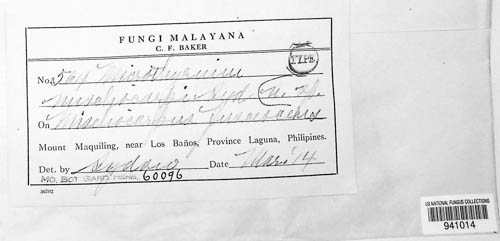 FUNGI MALAYANA
C. F. BAKER
TYPE
No. Microthyrium
mischocarpi Syd. n. sp.
On Mischocarpus fuscescens
Mount Maquiling, near Los Baños, Province Laguna, Philipines.
Det. by Sydow Date Mar. '14
MO. BOT. GARD. HERB. 60096
36702
US NATIONAL FUNGUS COLLECTIONS
941014